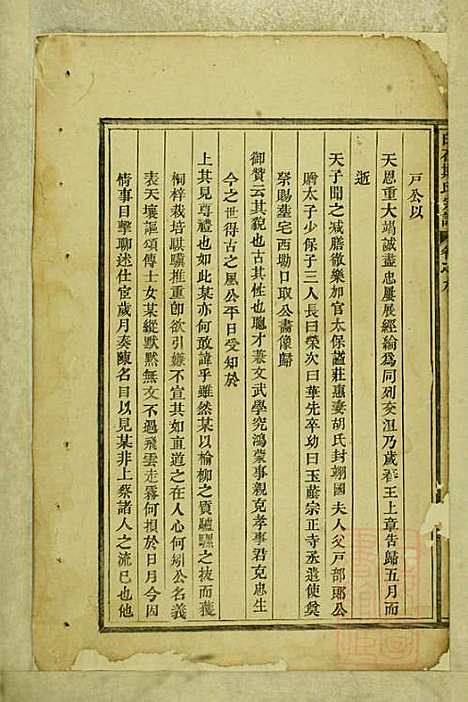 戸公以
天恩重大竭誠盡忠屢展經綸爲同列交沮乃歲春王上章告歸五月而
逝
天子聞之減膳徹樂加官太保諡莊惠妻胡氏封翊國夫人父戸部郎公
贈太子少保子三人長曰榮次曰華先卒幼曰玉蔭宗正寺丞遣使奠
祭賜墓宅西坳口取公畵像歸
御贊云其貌也古其性也聰才兼文武學究鴻蒙事親克孝事君克忠生
今之世得古之風公平日受知於
上其見尊禮也如此某亦何敢諱乎雖然某以榆柳之質驢騾之技而獲
桐梓栽培騏驥推重卽欲引嫌不宣其如直道之在人心何矧公名義
表天壤謳頌傳士女某縱默默無文不過飛雲走霧何損於日月今因
情事目擊聊述仕宦歲月奏陳名目以見某非上蔡諸人之流已也他